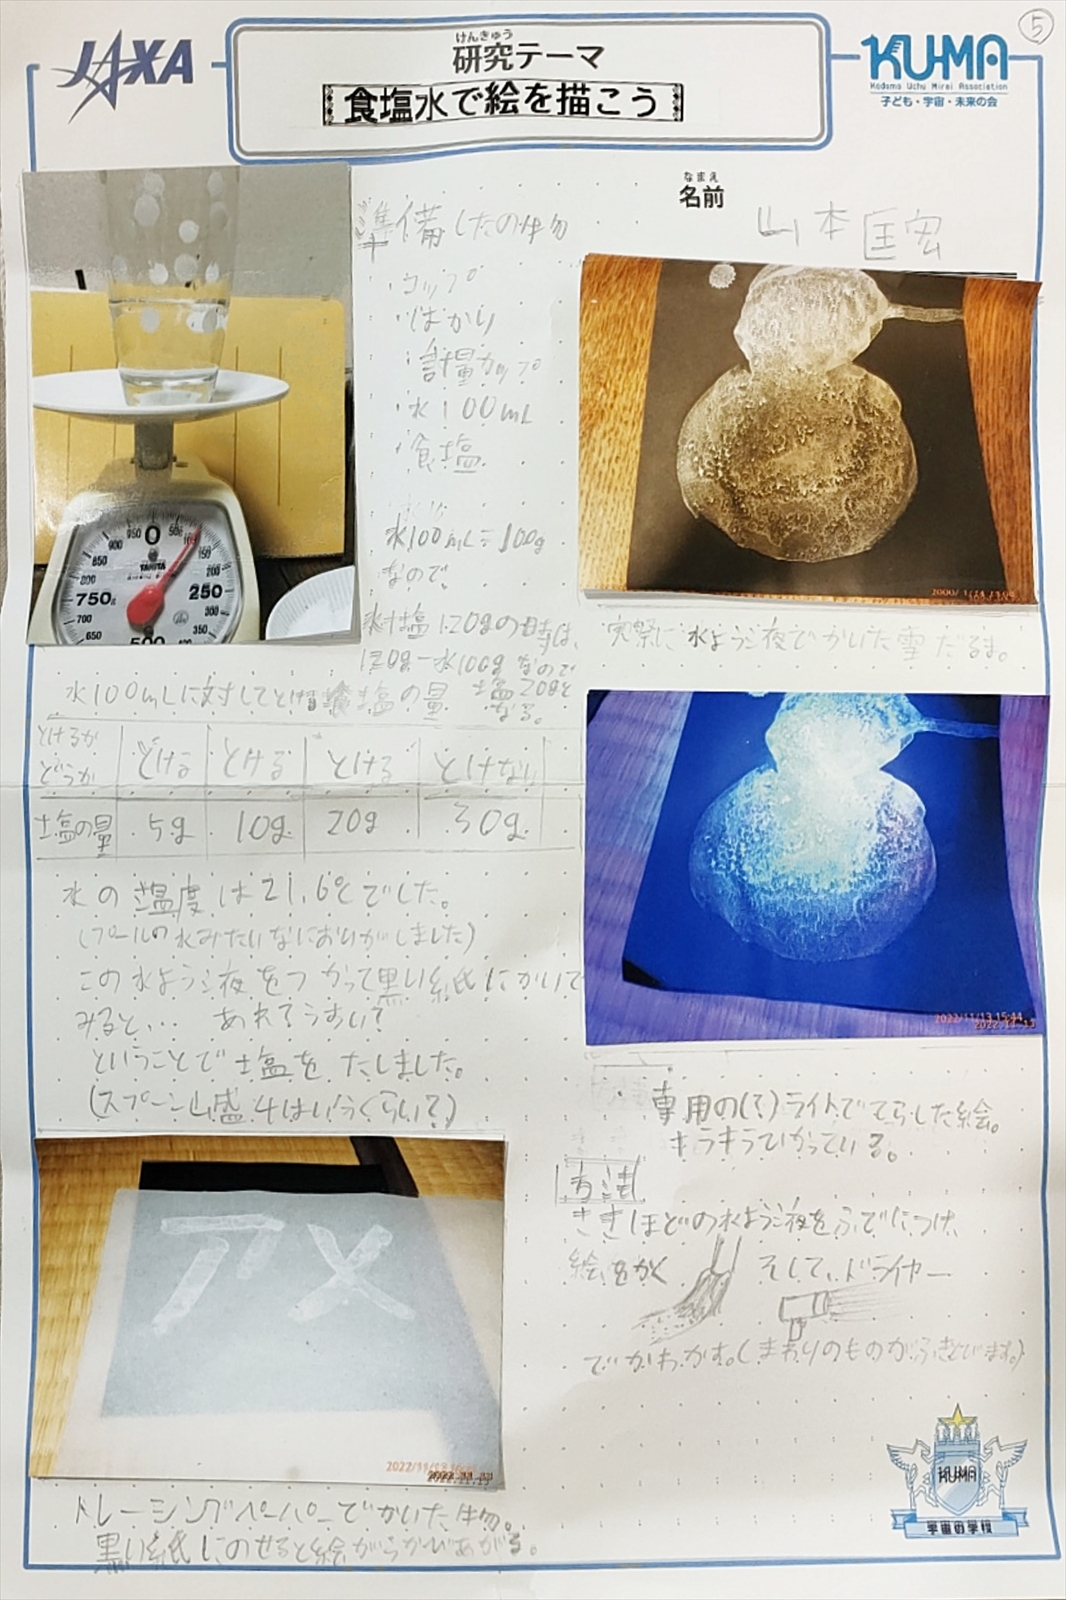 5
JAXA
けんきゅう
研究テーマ
食塩水で絵を描こう
KU-MA
Kodomo Uchu Mirai Association
子ども・宇宙・未来の会
なまえ
名前
山本匡宏
準備したの物
・コップ
・はかり
・計量カップ
・水100mL
・食塩
水100mL=100g
なので、
水+塩120gの時は、
120g-水100gなので
塩20gと
なる。
0
50
150
200
250
300
350
500
650
700
750g
800
850
900
950
TANITA
実際に水よう液でかいた雪だるま。
水100mLに対してとける食塩の量
とけるか
どうか
とける
とける
とける
とけない
塩の量
5g
10g
20g
30g
水の温度は21.6℃でした。
(プールの水みたいなにおいがしました)
この水よう液をつかって黒い紙にかいて
みると… あれ?うすい?
ということで塩をたしました。
(スプーン山盛4はいうくらい?)
2022/11/13 15:44
2022.11.13
専用の(?)ライトでてらした絵。
キラキラひかっている。
方法
さきほどの水よう液をふでにつけ、
絵をかく
そして、ドライヤー
でかわかす。(まわりのものがふきとびます。)
アメ
2022.11.13
トレーシングペーパーでかいた物。
黒い紙にのせると絵がうかびあがる。
KU-MA
宇宙の学校